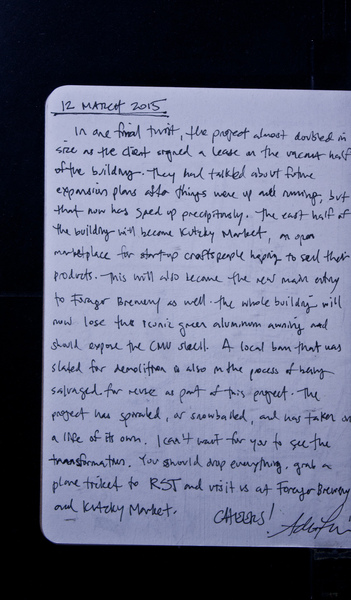 12 MARCH 2015
In one final twist, the project almost doubled in
size as the client signed a lease on the vacant half
of the building. They had talked about future
expansion plans after things were up and running, but
that now has sped up precipitously. The east half of
the building will become Kutzky Market, an open
marketplace for start-up craftspeople hoping to sell their
products. This will also become the new main entry
to Forager Brewery as well. The whole building will
now lose this iconic green aluminum awning and
should expose the CMU shell. A local barn that was
slated for demolition is also in the process of being
salvaged for reuse as part of this project. The
project has sprouted, or snowballed, and has taken on
a life of its own. I can't wait for you to see the
transformation. You should drop everything, grab a
plane ticket to RST and visit us at Forager Brewery
and Kutzky Market.
CHEERS!